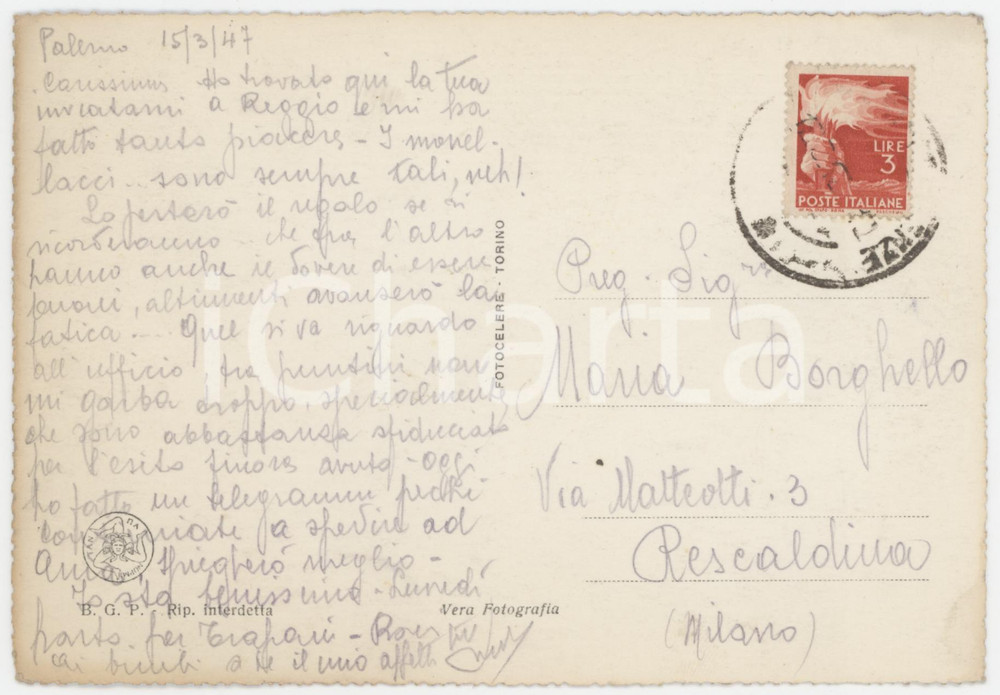 Palermo 15/3/47
Carissima Ho trovato qui la tua
inviatami a Reggio e mi ha
fatto tanto piacere - I monel-
lacci... sono sempre tali, neh!
Lo porterò il regalo se si
ricorderanno... che fra l'altro
hanno anche il dovere di essere
buoni, altrimenti avanserò la
fatica... Quel si va riguardo
all'ufficio tra puntini non
mi garba troppo, specialmente
che sono abbastanza sfiduciato
per l'esito finora avuto - Oggi
ho fatto un telegramma perchè
a spedire ad
spiegherò meglio -
Io sto benissimo - Lunedì
parto per Trapani -
Ai bimbi a te il mio affetto
B. G. P. - Rip. interdetta
Vera Fotografia
FOTOCELERE - TORINO
LIRE
3
POSTE ITALIANE
Preg. Sig.ra
Maria Borghello
Via Matteotti. 3
Rescaldina
(Milano)
iCharta